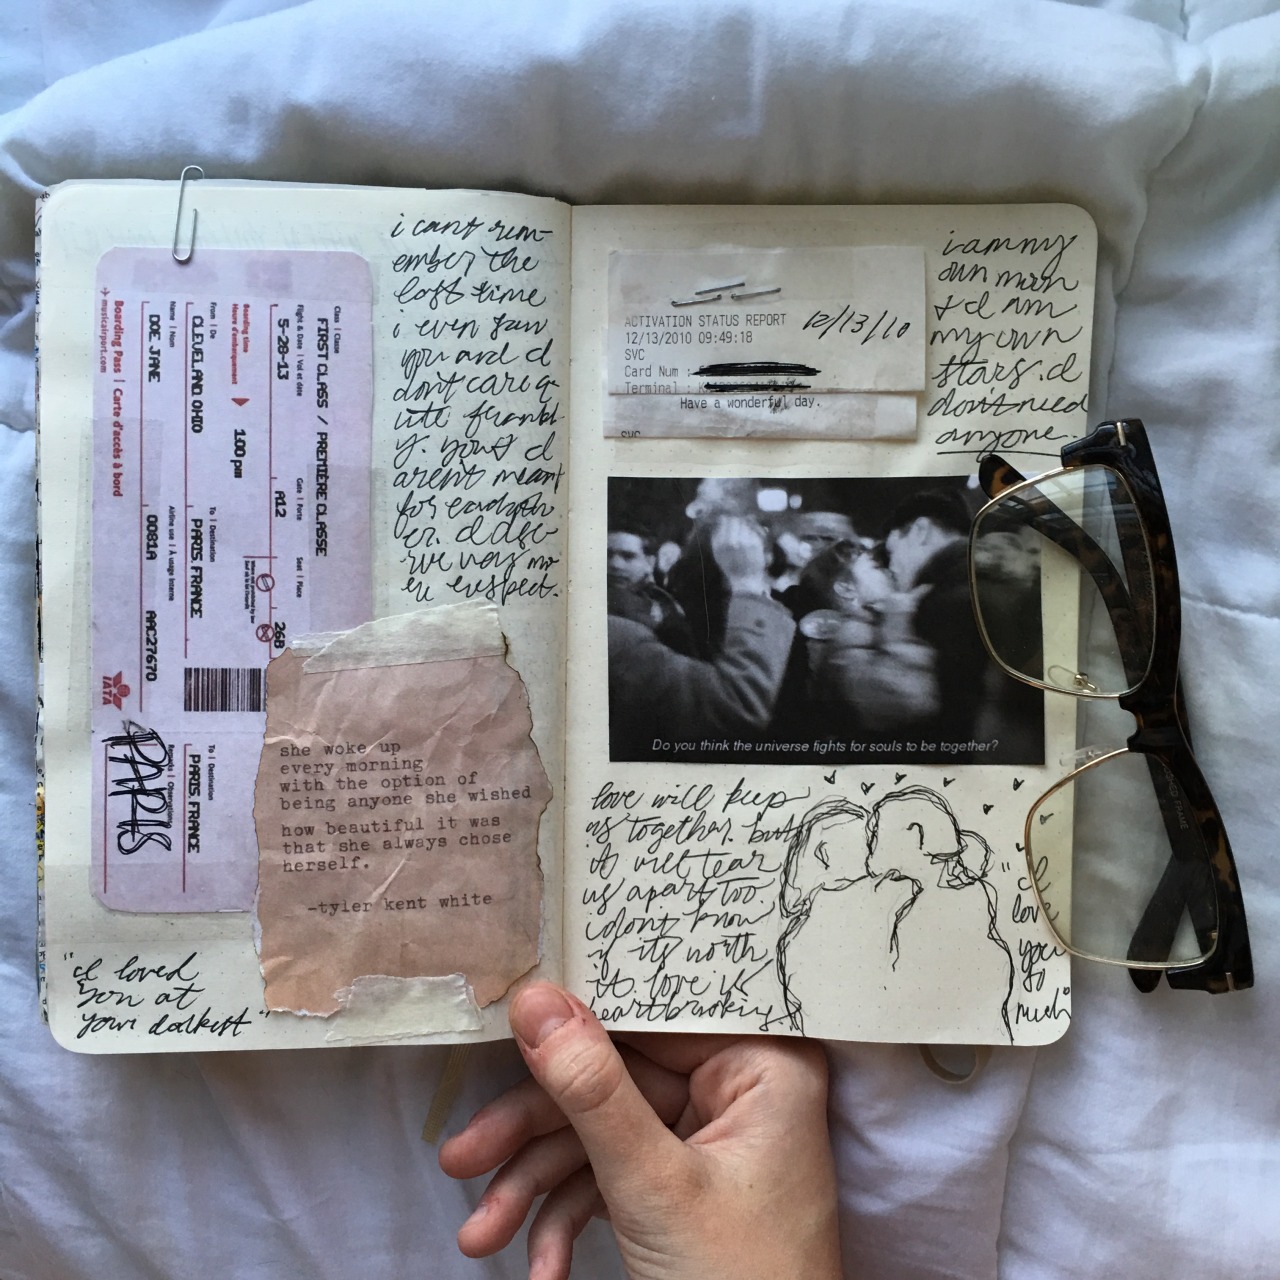 i cant rem-
ember the
last time
i even saw
you and I
dont care q-
uite frankl-
y. you & I
arent meant
for eachoth-
er. I dese-
rve way mo-
re respect.
Class | Classe
FIRST CLASS / PREMIÈRE CLASSE
Flight & Date | Vol et date
Gate | Porte
Seat | Place
5-28-13
A12
26B
Boarding time
Heure d'embarquement
1:00 pm
From | De
To | Destination
To | Destination
CLEVELAND, OHIO
PARIS, FRANCE
PARIS, FRANCE
Name | Nom
Airline use | À usage interne
DOE JANE
0081A
AAC27670
Boarding Pass | Carte d'accès à bord
musicalrport.com
IATA
PARIS
she woke up
every morning
with the option of
being anyone she wished
how beautiful it was
that she always chose
herself.
-tyler kent white
"I loved
you at
your darkest"
ACTIVATION STATUS REPORT
12/13/10
12/13/2010 09:49:18
SVC
Card Num :
Terminal :
Have a wonderful day.
SVC
i am my
own moon
& I am
my own
stars. I
don't need
anyone.
Do you think the universe fights for souls to be together?
love will keep
us together. but
it will tear
us apart too.
i dont know
if its worth
it. love is
heartbreaking.
"I
love
you
so
much"